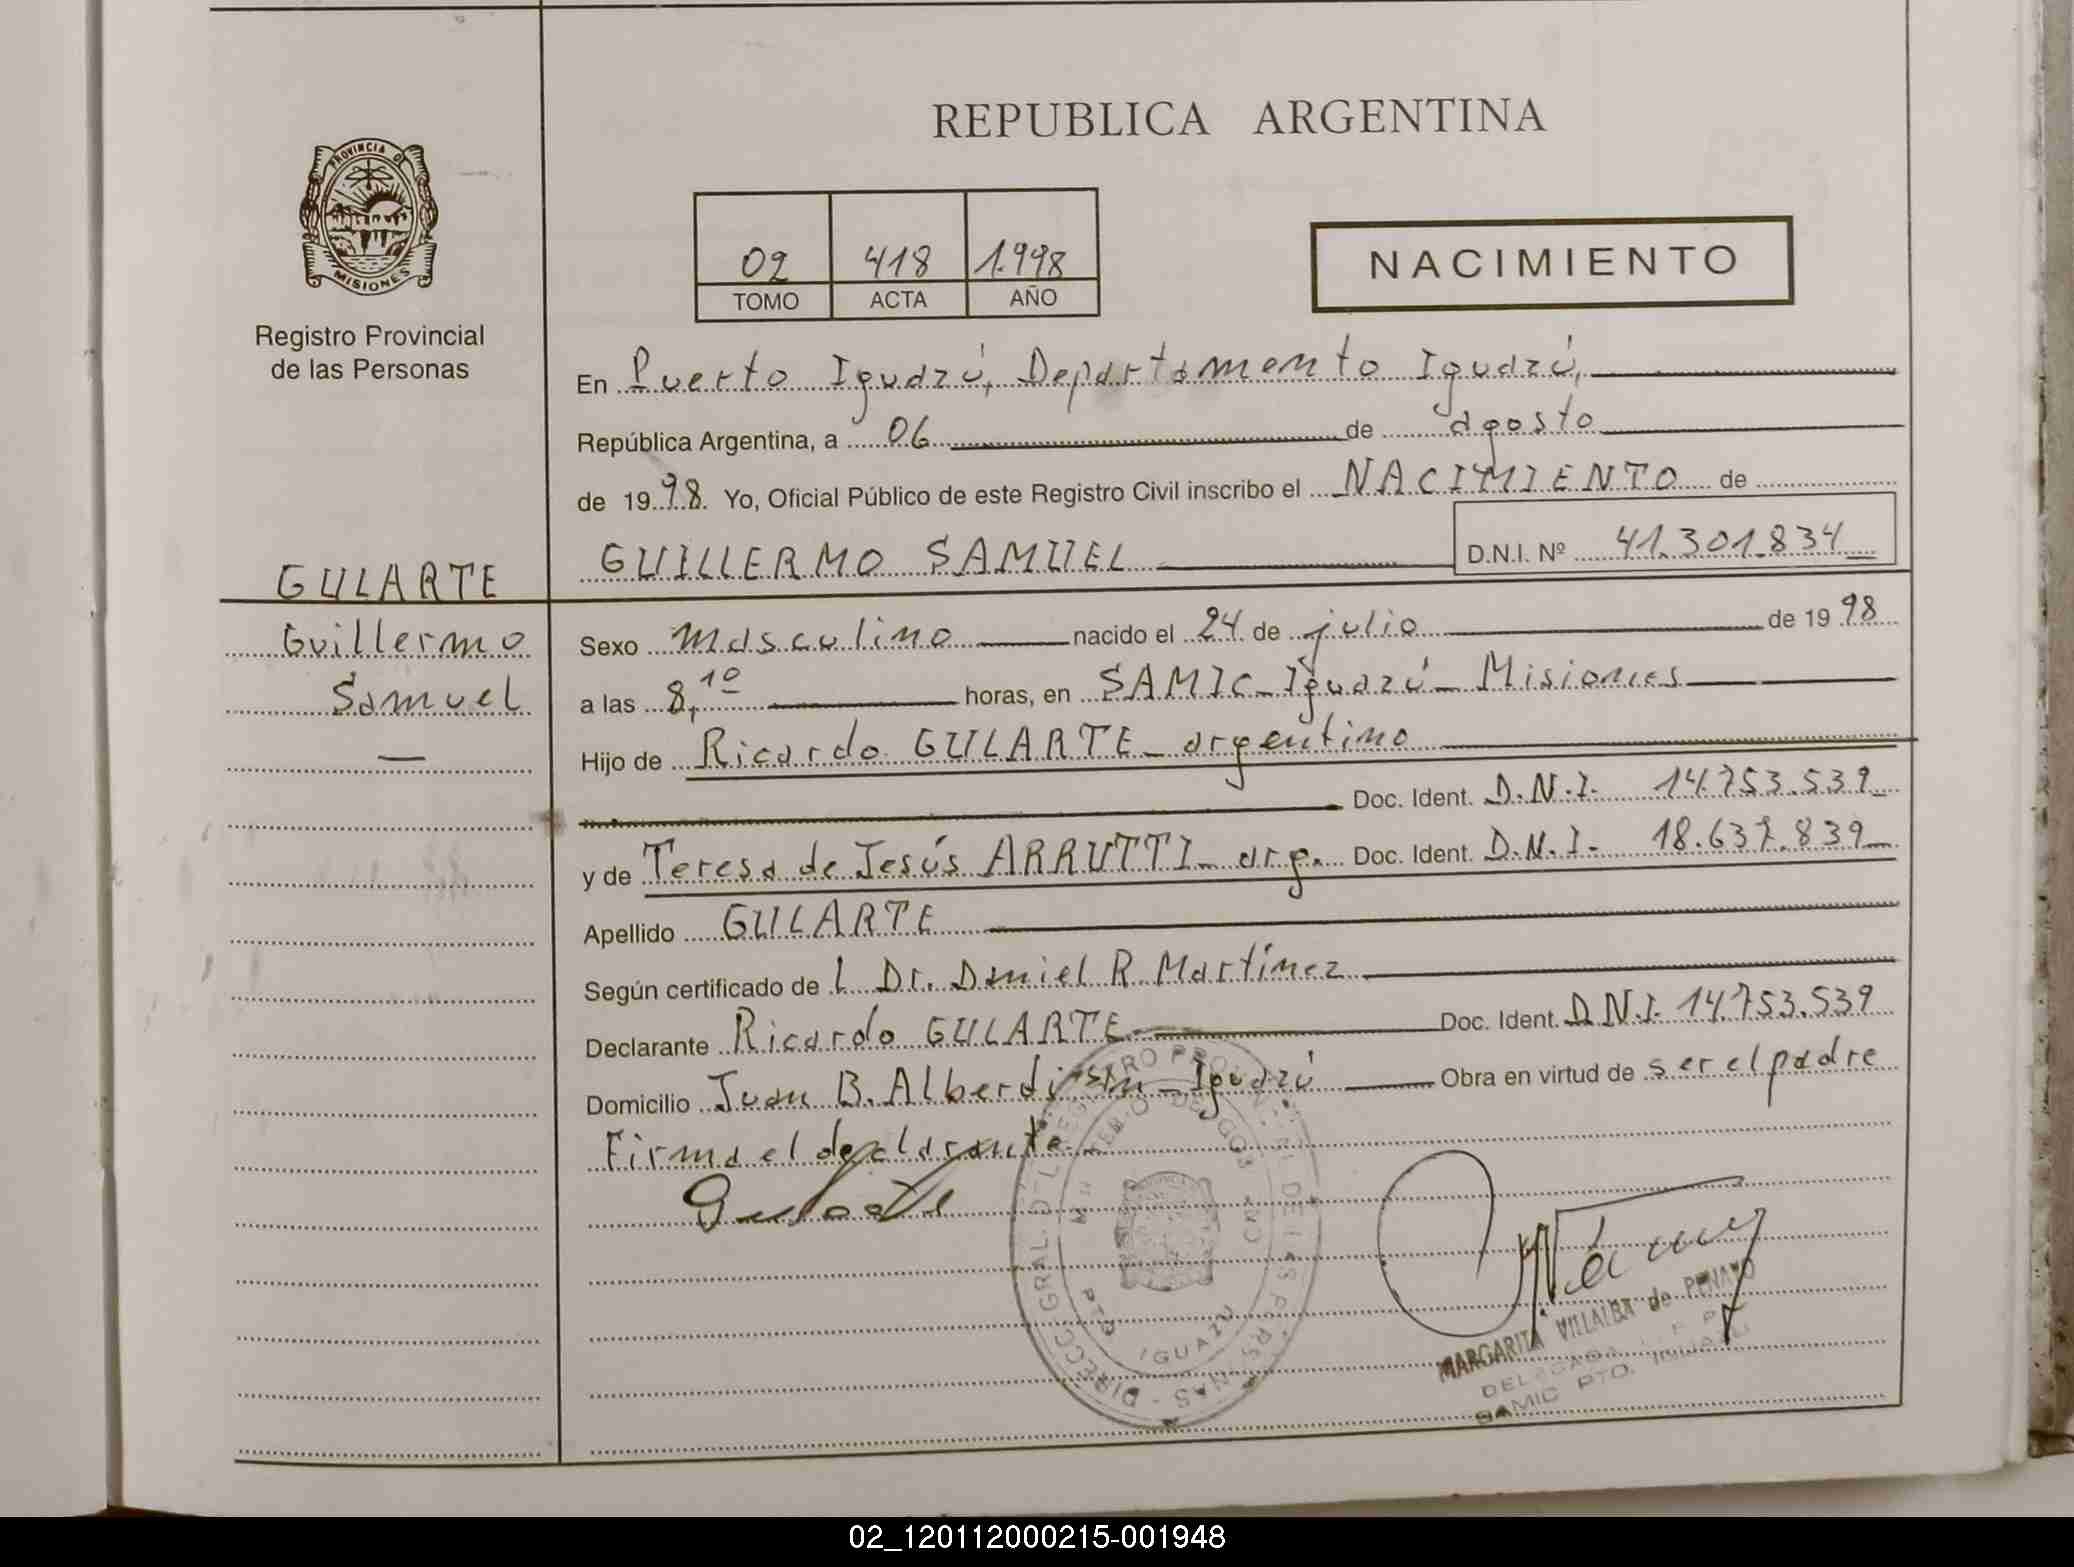 REPUBLICA ARGENTINA
PROVINCIA DE
MISIONES
Registro Provincial
de las Personas
02 418 1.998
TOMO ACTA AÑO
NACIMIENTO
En Puerto Iguazú, Departamento Iguazú,
República Argentina, a 06 de agosto
de 1998. Yo, Oficial Público de este Registro Civil inscribo el NACIMIENTO de
GUILLERMO SAMUEL D.N.I. Nº 41.301.834
GULARTE
Guillermo
Samuel
Sexo masculino nacido el 24 de julio de 1998
a las 8,10 horas, en SAMIC - Iguazú - Misiones
Hijo de Ricardo GULARTE - argentino
Doc. Ident. D.N.I. 14.753.539
y de Teresa de Jesús ARRUTTI - arg. Doc. Ident. D.N.I. 18.637.839
Apellido GULARTE
Según certificado de l Dr. Daniel R. Martínez
Declarante Ricardo GULARTE Doc. Ident. D.N.I. 14.753.539
Domicilio Juan B. Alberdi s/n - Iguazú Obra en virtud de ser el padre
Firma el declarante
DIRECC. GRAL. DEL REGISTRO PROV. DE LAS PERSONAS
PTO IGUAZU
MARGARITA VILLALBA de PENAYO
SAMIC PTO. IGUAZU
02_120112000215-001948